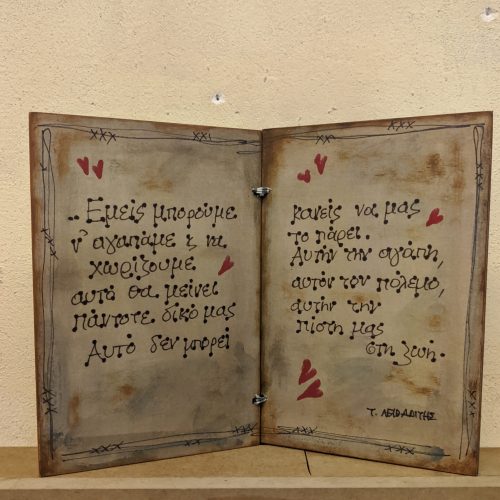 ..Εμείς μπορούμε
ν' αγαπάμε ή να
χωρίζουμε
αυτό θα μείνει
πάντοτε δικό μας
Αυτό δεν μπορεί
κανείς να μας
το πάρει.
Αυτήν την αγάπη,
αυτόν τον πόλεμο,
αυτήν την
πίστη μας
στη ζωή.
Τ. ΛΕΙΒΑΔΙΤΗΣ